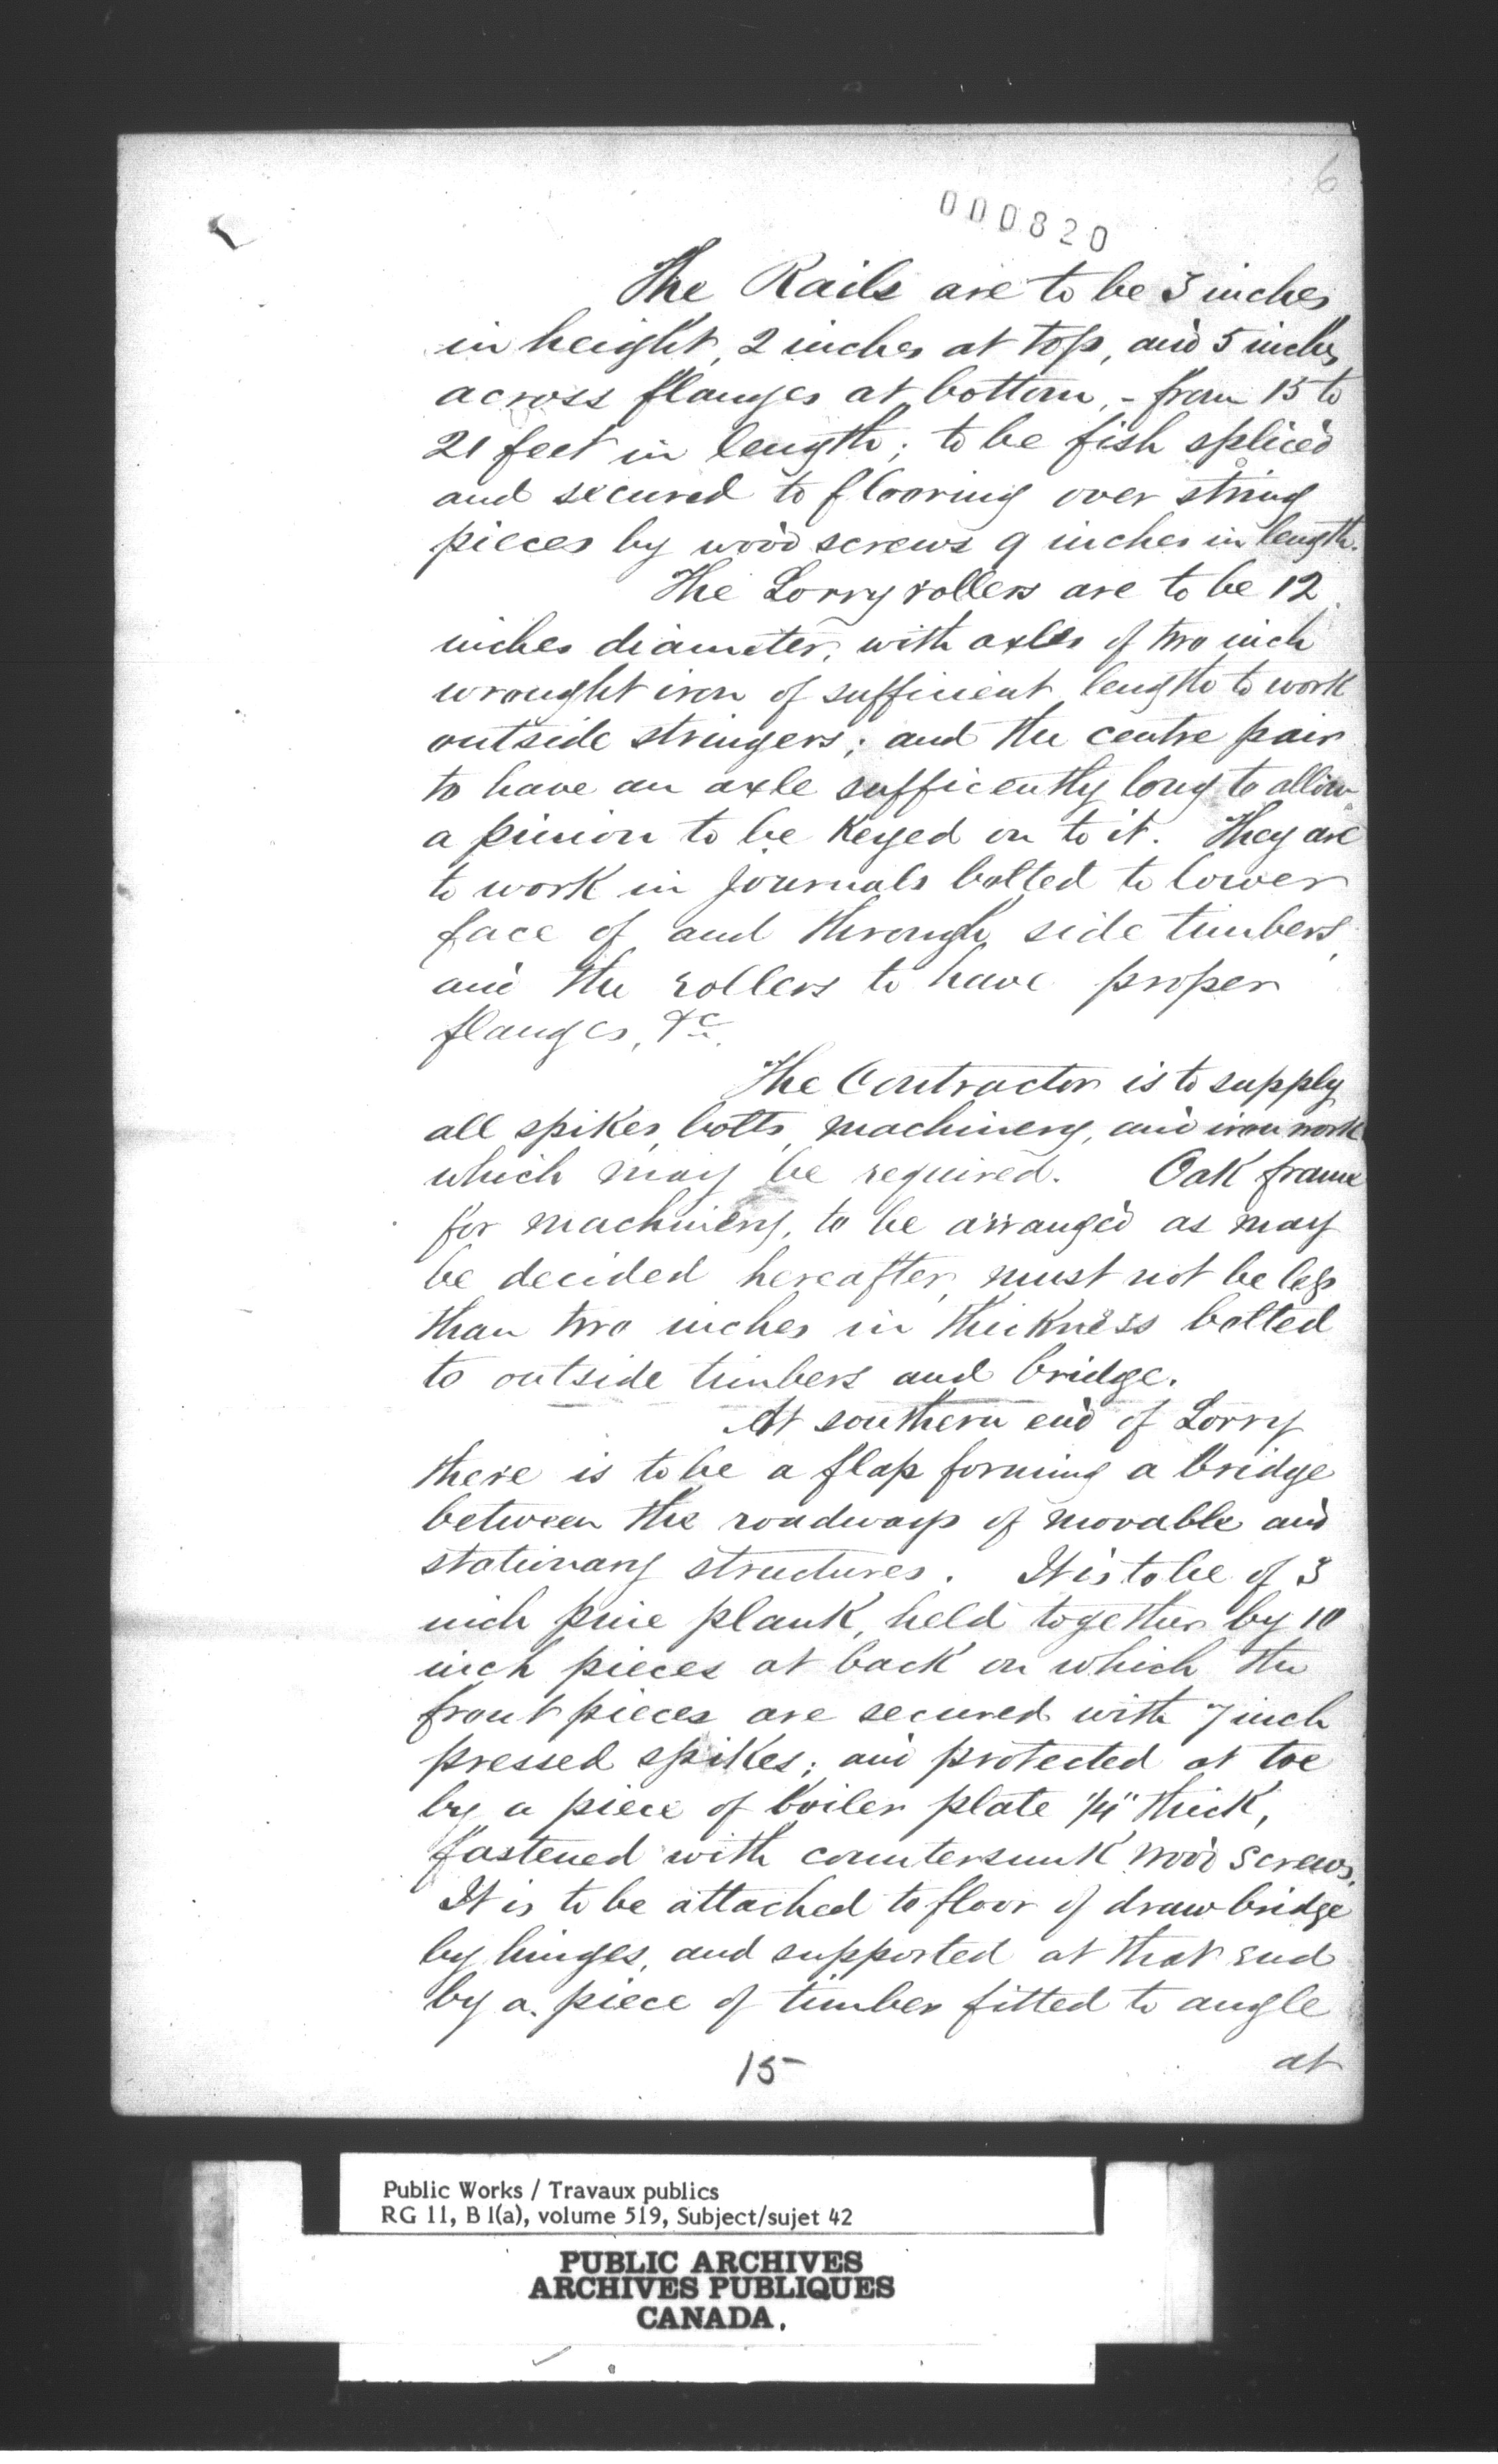 6
000820
The Rails are to be 3 inches
in height, 2 inches at top, and 5 inches
across flanges at bottom, - from 15 to
21 feet in length; to be fish spliced
and secured to flooring over string
pieces by wood screws 9 inches in length.
The Lorry rollers are to be 12
inches diameter, with axles of two inch
wrought iron of sufficient length to work
outside stringers; and the centre pair
to have an axle sufficently long to allow
a pinion to be keyed on to it. They are
to work in journals bolted to lower
face of and through side timbers,
and the rollers to have proper
flanges, &c.
The Contractor is to supply
all spikes, bolts, machinery, and iron work
which may be required. Oak frame
for machinery, to be arranged as may
be decided hereafter, must not be less
than two inches in thickness bolted
to outside timbers and bridge.
At southern end of Lorry
there is to be a flap forming a bridge
between the roadways of movable and
stationary structures. It is to be of 3
inch pine plank, held together by 10
inch pieces at back on which the
front pieces are secured with 7 inch
pressed spikes; and protected at toe
by a piece of boiler plate 1/4" thick,
fastened with countersunk wood screws.
It is to be attached to floor of drawbridge
by hinges, and supported at that end
by a piece of timber fitted to angle
15
at
Public Works / Travaux publics
RG 11, B 1(a), volume 519, Subject/sujet 42
PUBLIC ARCHIVES
ARCHIVES PUBLIQUES
CANADA.